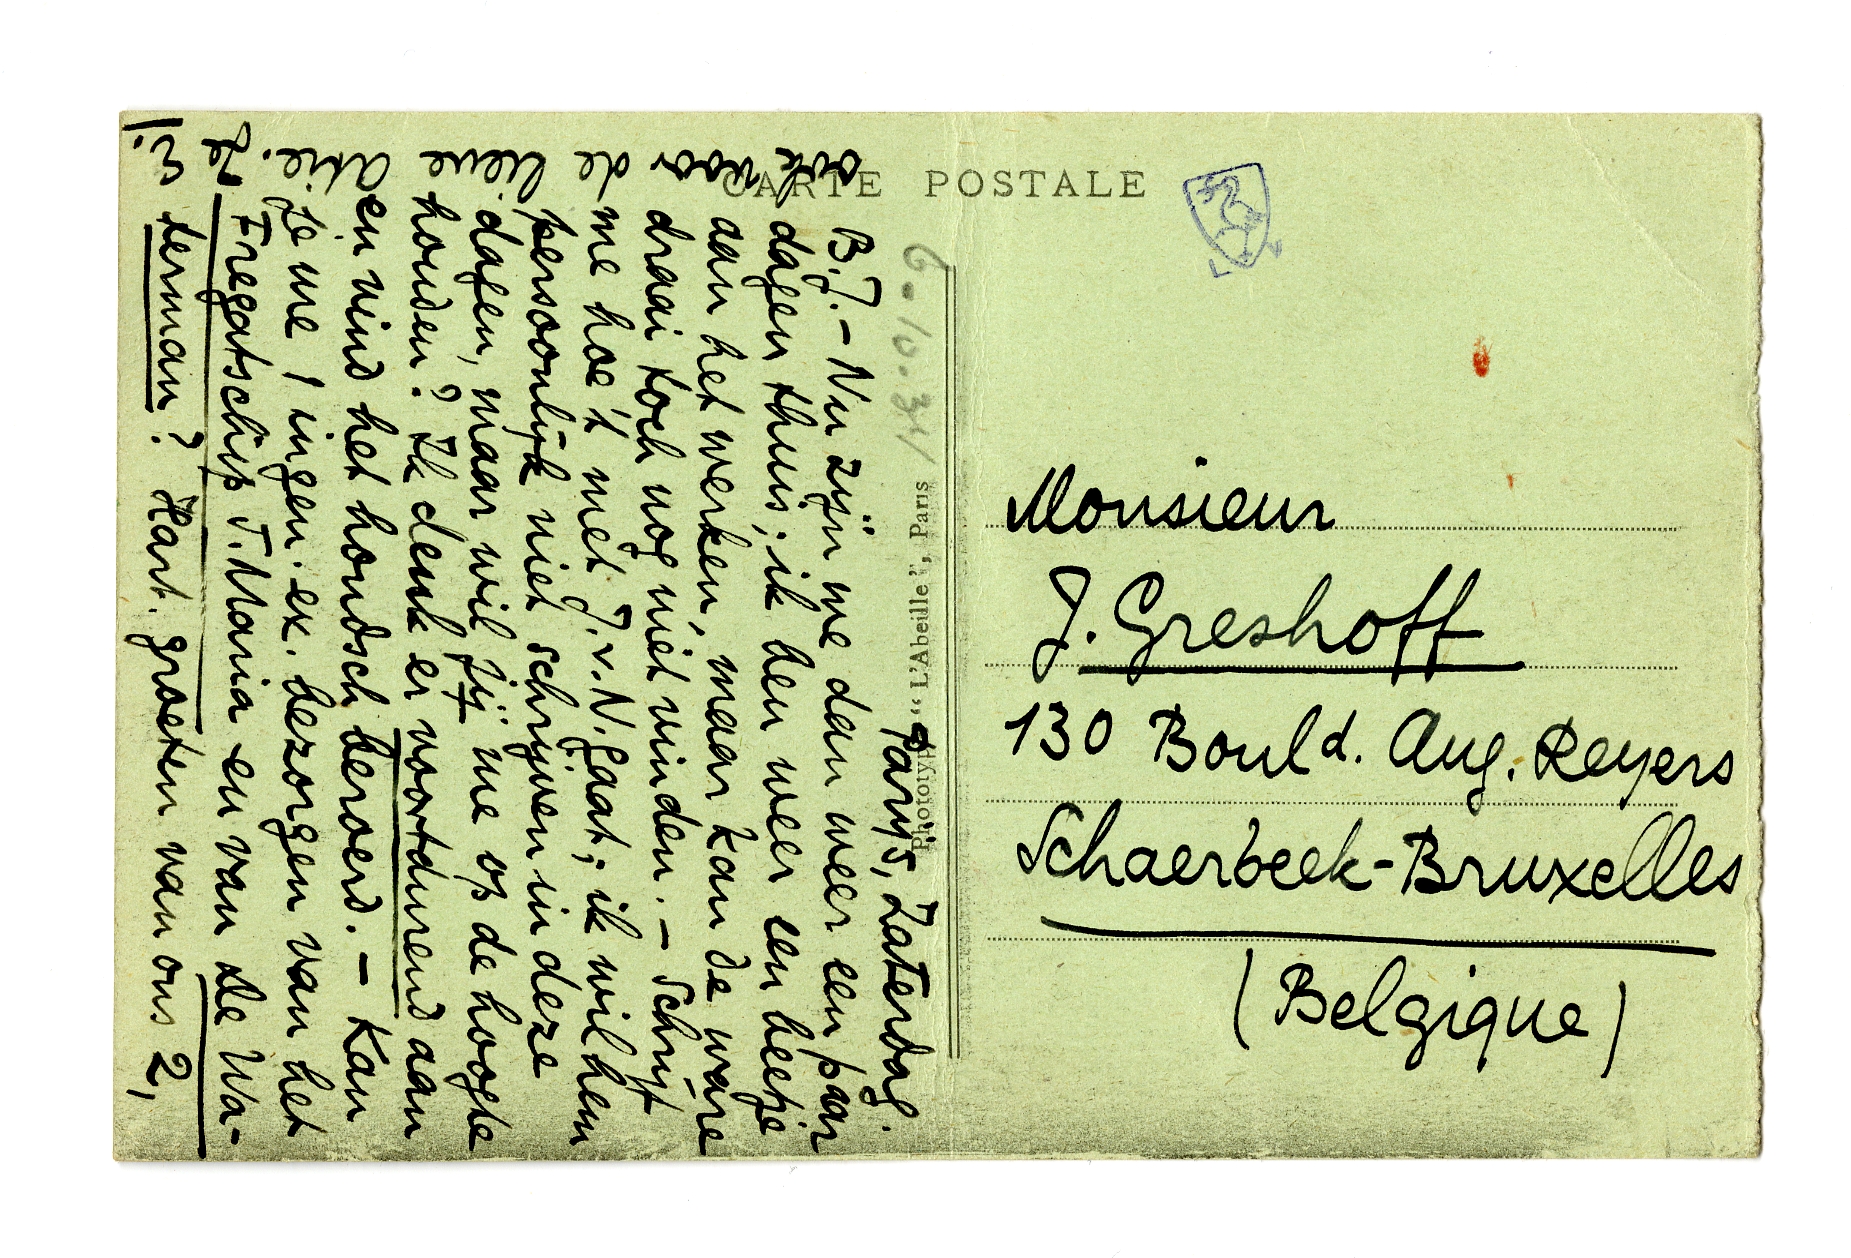 CARTE POSTALE
Parijs, Zaterdag.
B.J. - Nu zijn we dan weer een paar
dagen thuis; ik ben weer een beetje
aan het werken, maar kan de ware
draai toch nog niet vinden. - Schrijf
me hoe 't met J. v. N. gaat; ik wil hem
persoonlijk niet schrijven in deze
dagen, maar wil jij me op de hoogte
houden? Ik denk er voortdurend aan
en vind het hondsch beroerd. - Kan
je me 1 ingen. ex. bezorgen van het
Fregatschip J. Maria en van de Wa-
terman? Hart. groeten van ons 2,
ook voor de lieve Atie. Je
E.
6-10-34
Phototypie "L'Abeille", Paris
Monsieur
J. Greshoff
130 Bould. Aug. Reyers
Schaerbeek-Bruxelles
(Belgique)